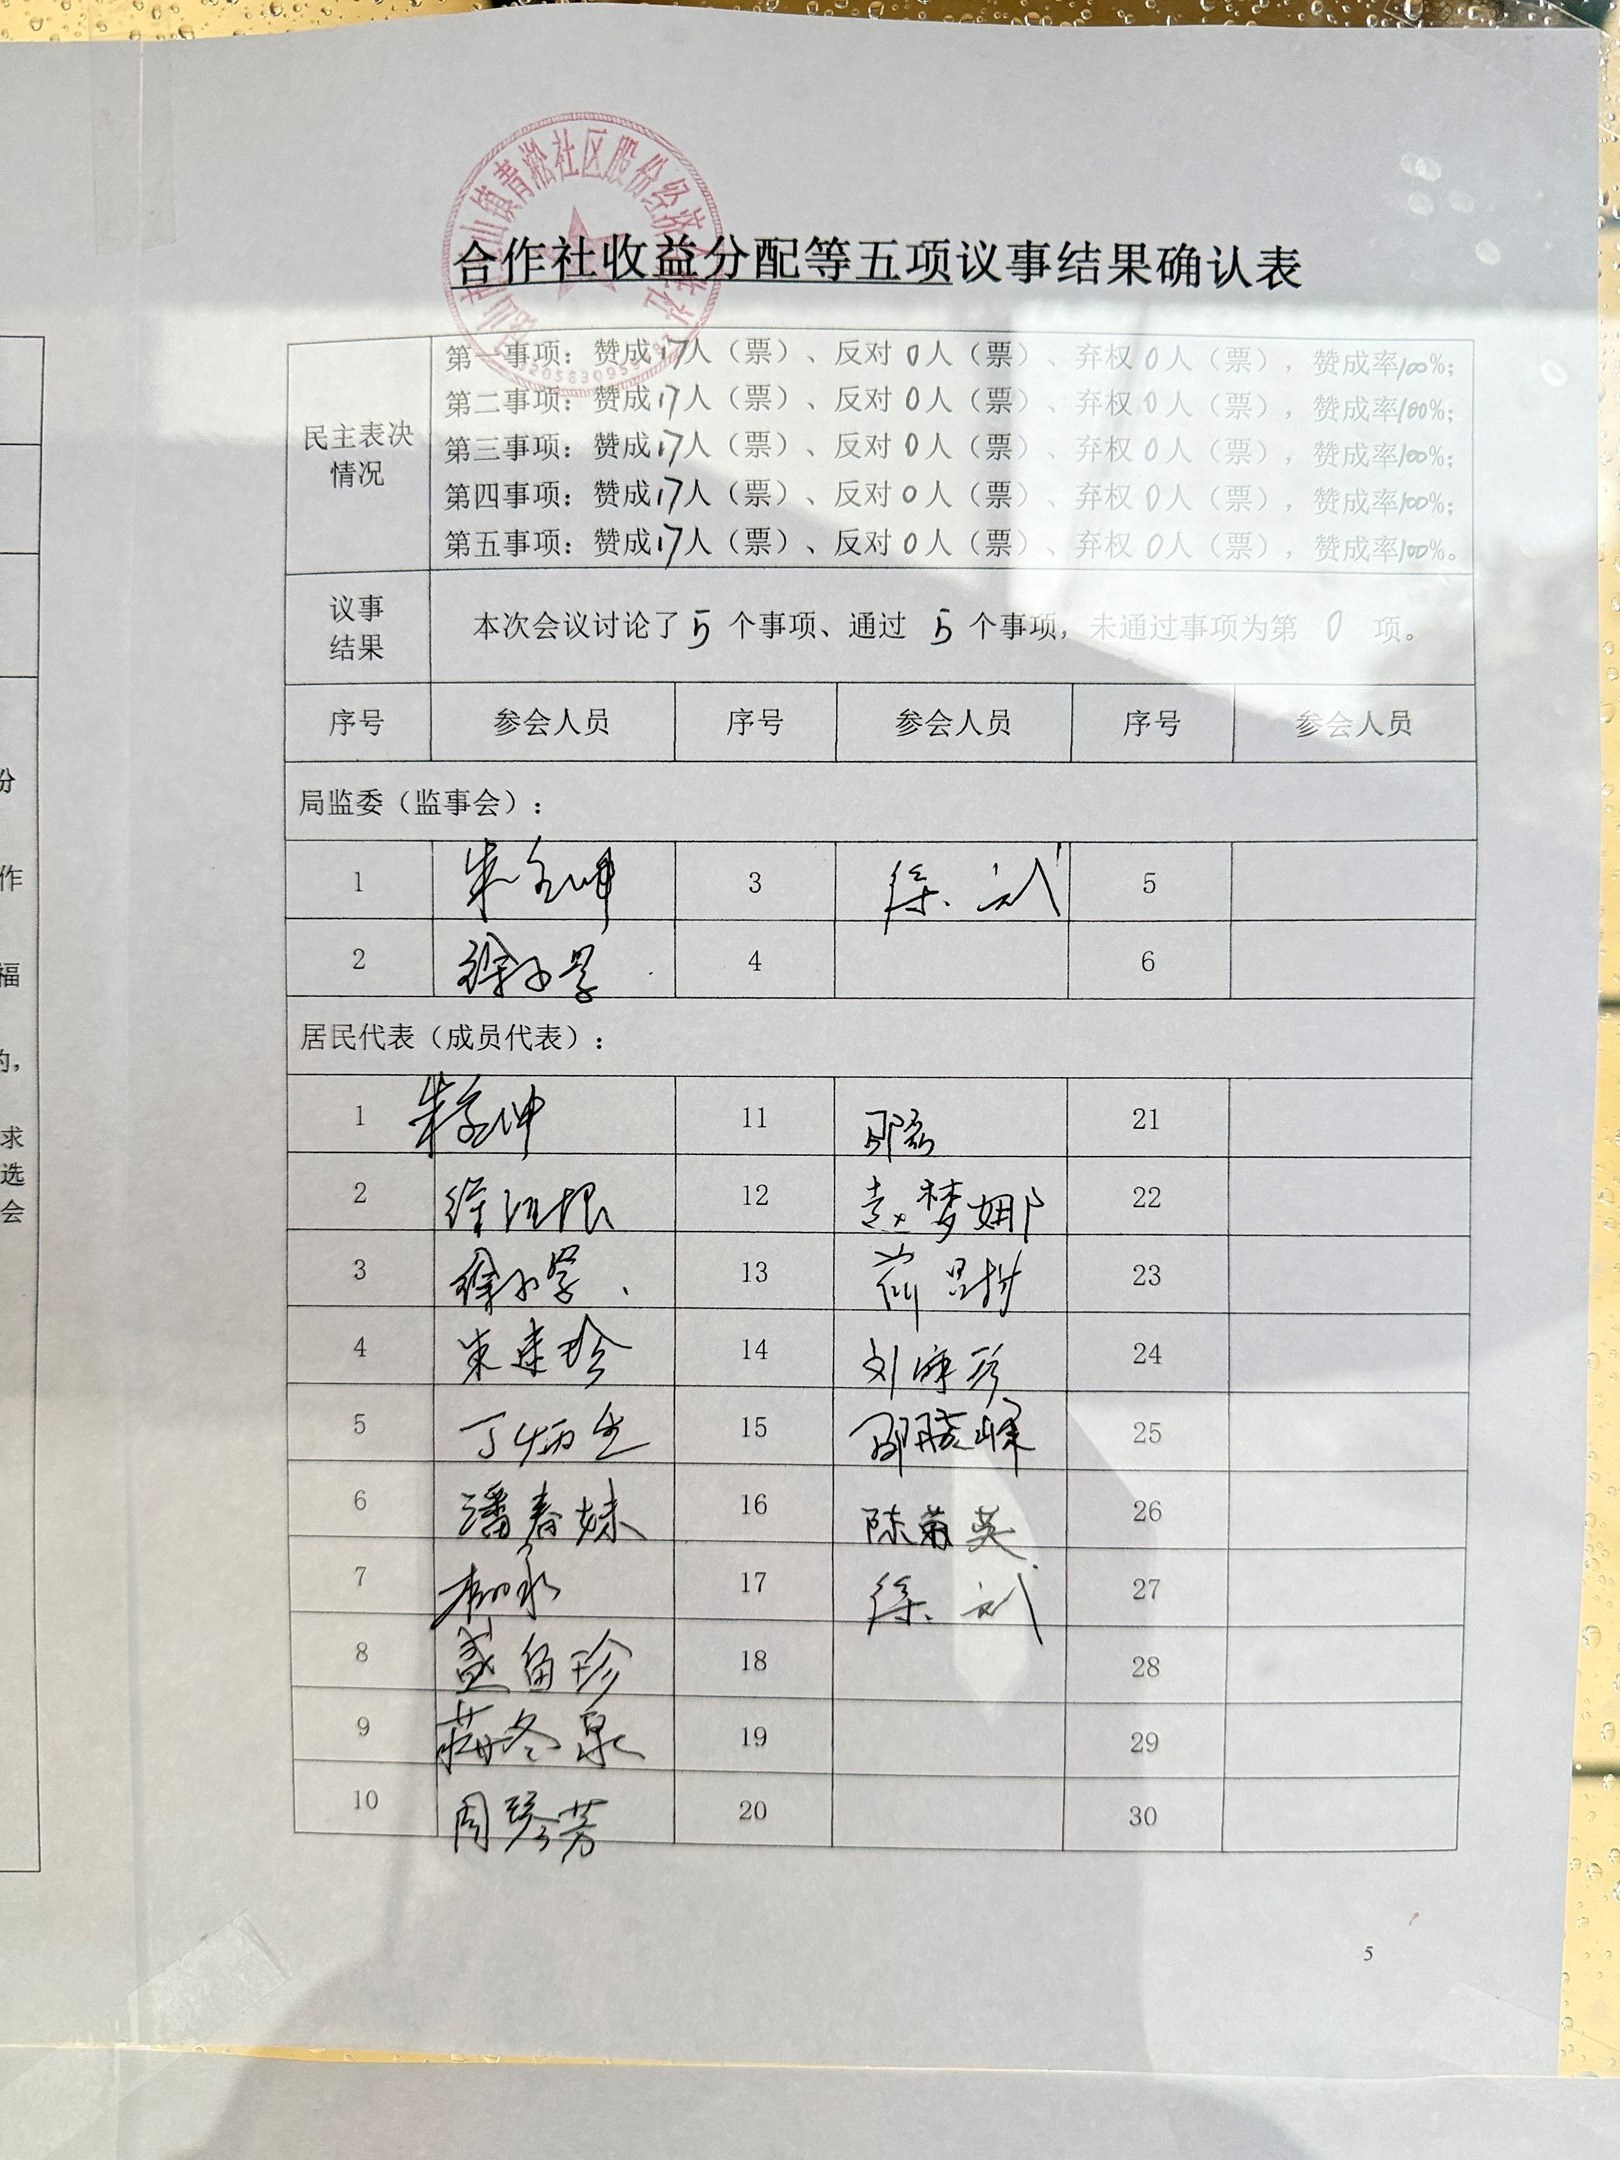 山镇青淞社区股份经济
合作社收益分配等五项议事结果确认表
民主表决
情况
第一事项：赞成17人（票）、反对0人（票）、弃权0人（票），赞成率100%；
第二事项：赞成17人（票）、反对0人（票）、弃权0人（票），赞成率100%；
第三事项：赞成17人（票）、反对0人（票）、弃权0人（票），赞成率100%；
第四事项：赞成17人（票）、反对0人（票）、弃权0人（票），赞成率100%；
第五事项：赞成17人（票）、反对0人（票）、弃权0人（票），赞成率100%。
议事
结果
本次会议讨论了5个事项、通过5个事项，未通过事项为第0项。
序号 参会人员 序号 参会人员 序号 参会人员
局监委（监事会）：
1 3 徐斌 5
2 徐小学 4 6
居民代表（成员代表）：
1 11 邵磊 21
2 12 袁梦娜 22
3 徐小学 13 23
4 朱建珍 14 24
5 丁炳生 15 邵晓峰 25
6 潘春妹 16 陈菊英 26
7 17 徐斌 27
8 盛角珍 18 28
9 蒋冬泉 19 29
10 周琴芳 20 30
5
份
作
福
的，
求
选
会